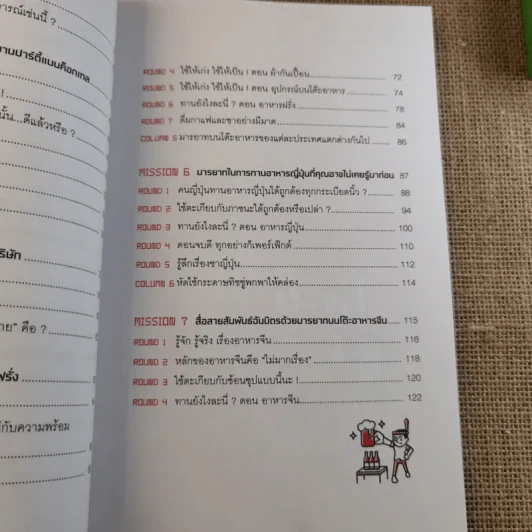 รณ์เช่นนี้ ?
านปาร์ตี้แบบค็อกเทล
!
นั้น...ดีแล้วหรือ ?
ริษัท
าย" คือ ?
ฝรั่ง
ี่กับความพร้อม
ROUND 4 ใช้ให้เก่ง ใช้ให้เป็น ! ตอน ผ้ากันเปื้อน 72
ROUND 5 ใช้ให้เก่ง ใช้ให้เป็น ! ตอน อุปกรณ์บนโต๊ะอาหาร 74
ROUND 6 ทานยังไงละนี่ ? ตอน อาหารฝรั่ง 78
ROUND 7 ดื่มกาแฟและชาอย่างมีมาด 84
COLUMN 5 มารยาทบนโต๊ะอาหารของแต่ละประเทศแตกต่างกันไป 86
MISSION 6 มารยาทในการทานอาหารญี่ปุ่นที่คุณอาจไม่เคยรู้มาก่อน 87
ROUND 1 คนญี่ปุ่นทานอาหารญี่ปุ่นได้ถูกต้องทุกกระเบียดนิ้ว ? 88
ROUND 2 ใช้ตะเกียบกับภาชนะได้ถูกต้องหรือเปล่า ? 94
ROUND 3 ทานยังไงละนี่ ? ตอน อาหารญี่ปุ่น 100
ROUND 4 ตอนจบดี ทุกอย่างก็เพอร์เฟ็กต์ 110
ROUND 5 รู้ลึกเรื่องชาญี่ปุ่น 112
COLUMN 6 หัดใช้กระดาษทิชชู่พกพาให้คล่อง 114
MISSION 7 สื่อสายสัมพันธ์ฉันมิตรด้วยมารยาทบนโต๊ะอาหารจีน 115
ROUND 1 รู้จัก รู้จริง เรื่องอาหารจีน 116
ROUND 2 หลักของอาหารจีนคือ "ไม่มากเรื่อง" 118
ROUND 3 ใช้ตะเกียบกับช้อนซุปแบบนี้นะ ! 120
ROUND 4 ทานยังไงละนี่ ? ตอน อาหารจีน 122